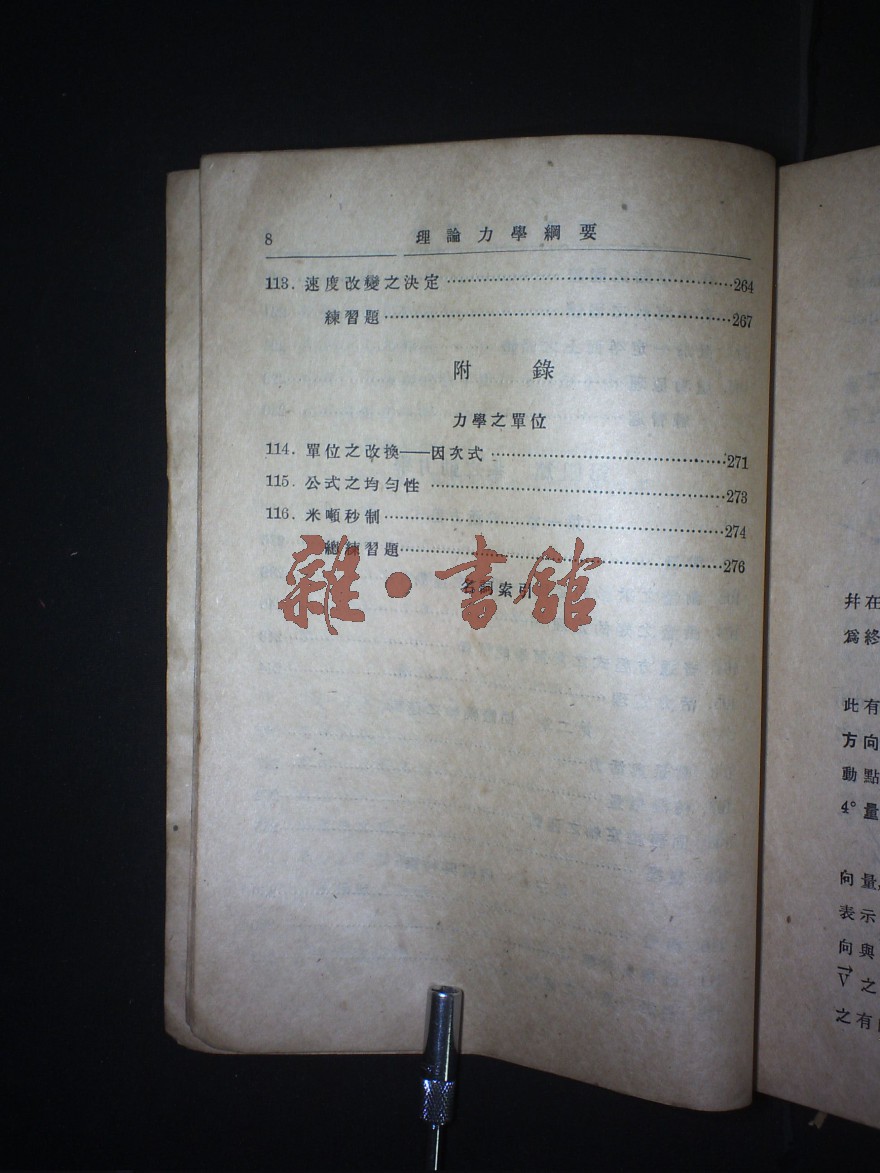 8 理論力學綱要
113. 速度改變之決定 264
練習題 267
附錄
力學之單位
114. 單位之改換——因次式 271
115. 公式之均勻性 273
116. 米噸秒制 274
總練習題 276
名詞索引
雜·書館
幷在
爲終
此有
方向
動點
4° 量
向量
表示
向與
V 之
之有